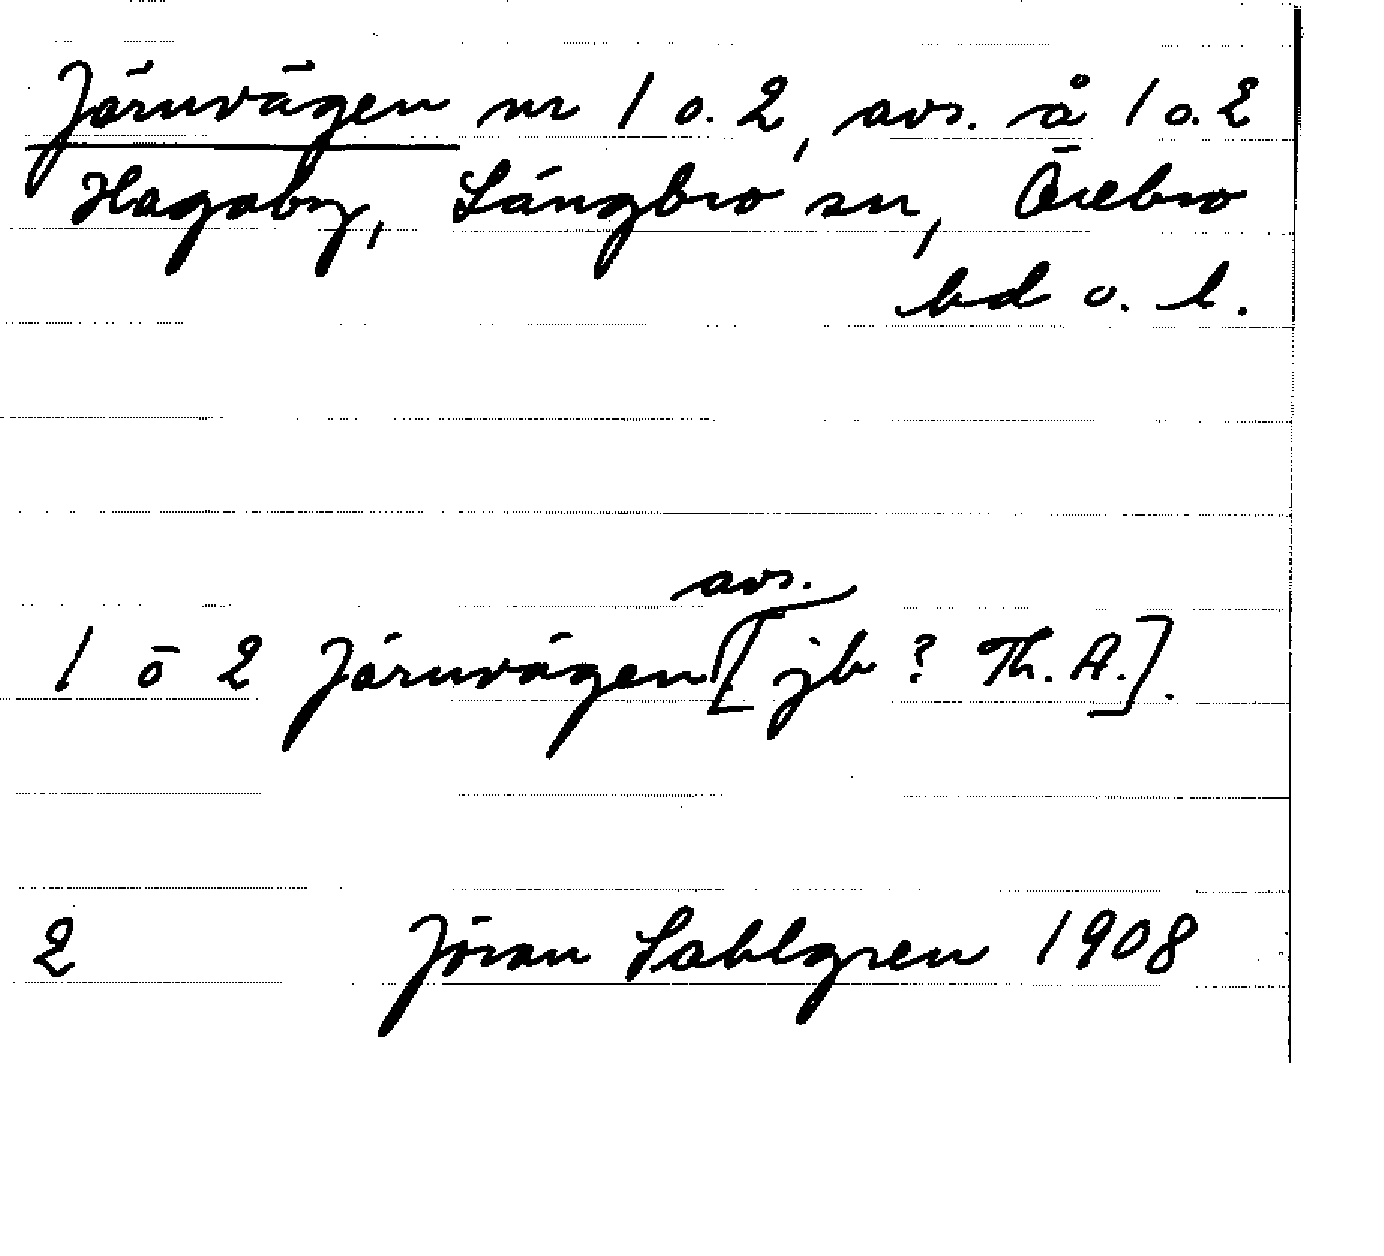 Järnvägen nr 1 o. 2, avs. å 1 o. 2
Hagaby, Längbro sn, Örebro
hd o. l.
avs.
1 ō 2 Järnvägen [jb? Th. A.].
2 Jöran Sahlgren 1908